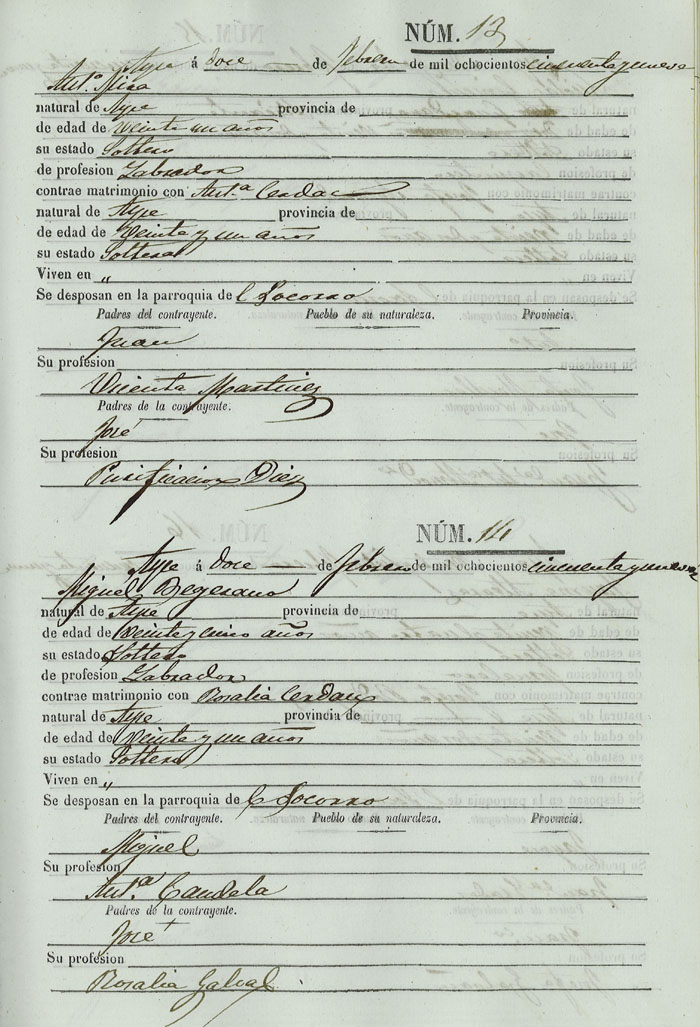 NÚM. 13
Aspe á doce de febrero de mil ochocientos cincuenta y nueve
Ant.o Mira
natural de Aspe provincia de
de edad de veinte un años
su estado Soltero
de profesion Labrador
contrae matrimonio con Ant.a Cerdan
natural de Aspe provincia de
de edad de Veinte y un años
su estado Soltera
Viven en „
Se desposan en la parroquia de el Socorro
Padres del contrayente. Pueblo de su naturaleza. Provincia.
Juan
Su profesion
Vicenta Martinez
Padres de la contrayente.
José
Su profesion
Purificacion Diez
NÚM. 14
Aspe á doce de febrero de mil ochocientos cincuenta y nueve
Miguel
natural de Aspe provincia de
de edad de veinte y cinco años
su estado Soltero
de profesion Labrador
contrae matrimonio con Rosalia Cerdan
natural de Aspe provincia de
de edad de Veinte y un años
su estado Soltera
Viven en „
Se desposan en la parroquia de el Socorro
Padres del contrayente. Pueblo de su naturaleza. Provincia.
Miguel
Su profesion
Ant.a Candela
Padres de la contrayente.
José
Su profesion
Rosalia Galvañ